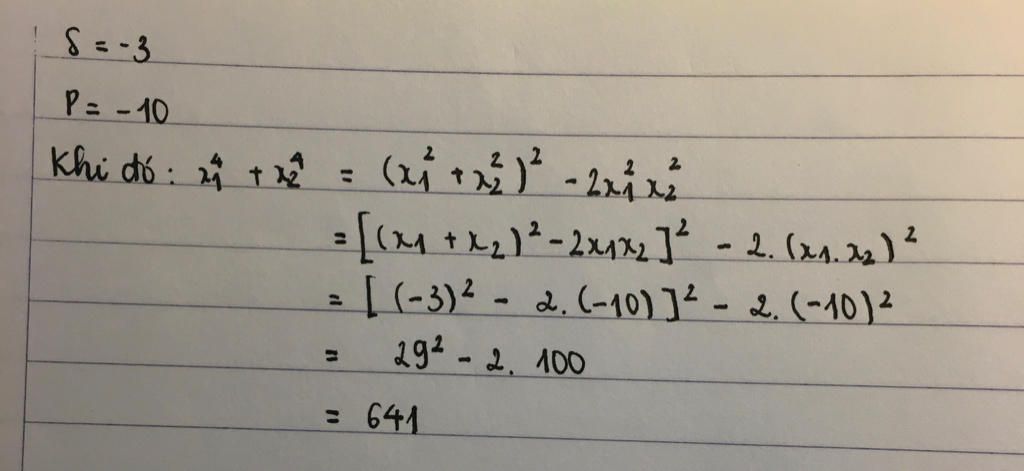 S = -3
P = -10
Khi đó : x₁⁴ + x₂⁴ = (x₁² + x₂²)² - 2x₁² x₂²
= [(x₁ + x₂)² - 2x₁x₂]² - 2. (x₁. x₂)²
= [ (-3)² - 2. (-10) ]² - 2. (-10)²
= 29² - 2. 100
= 641